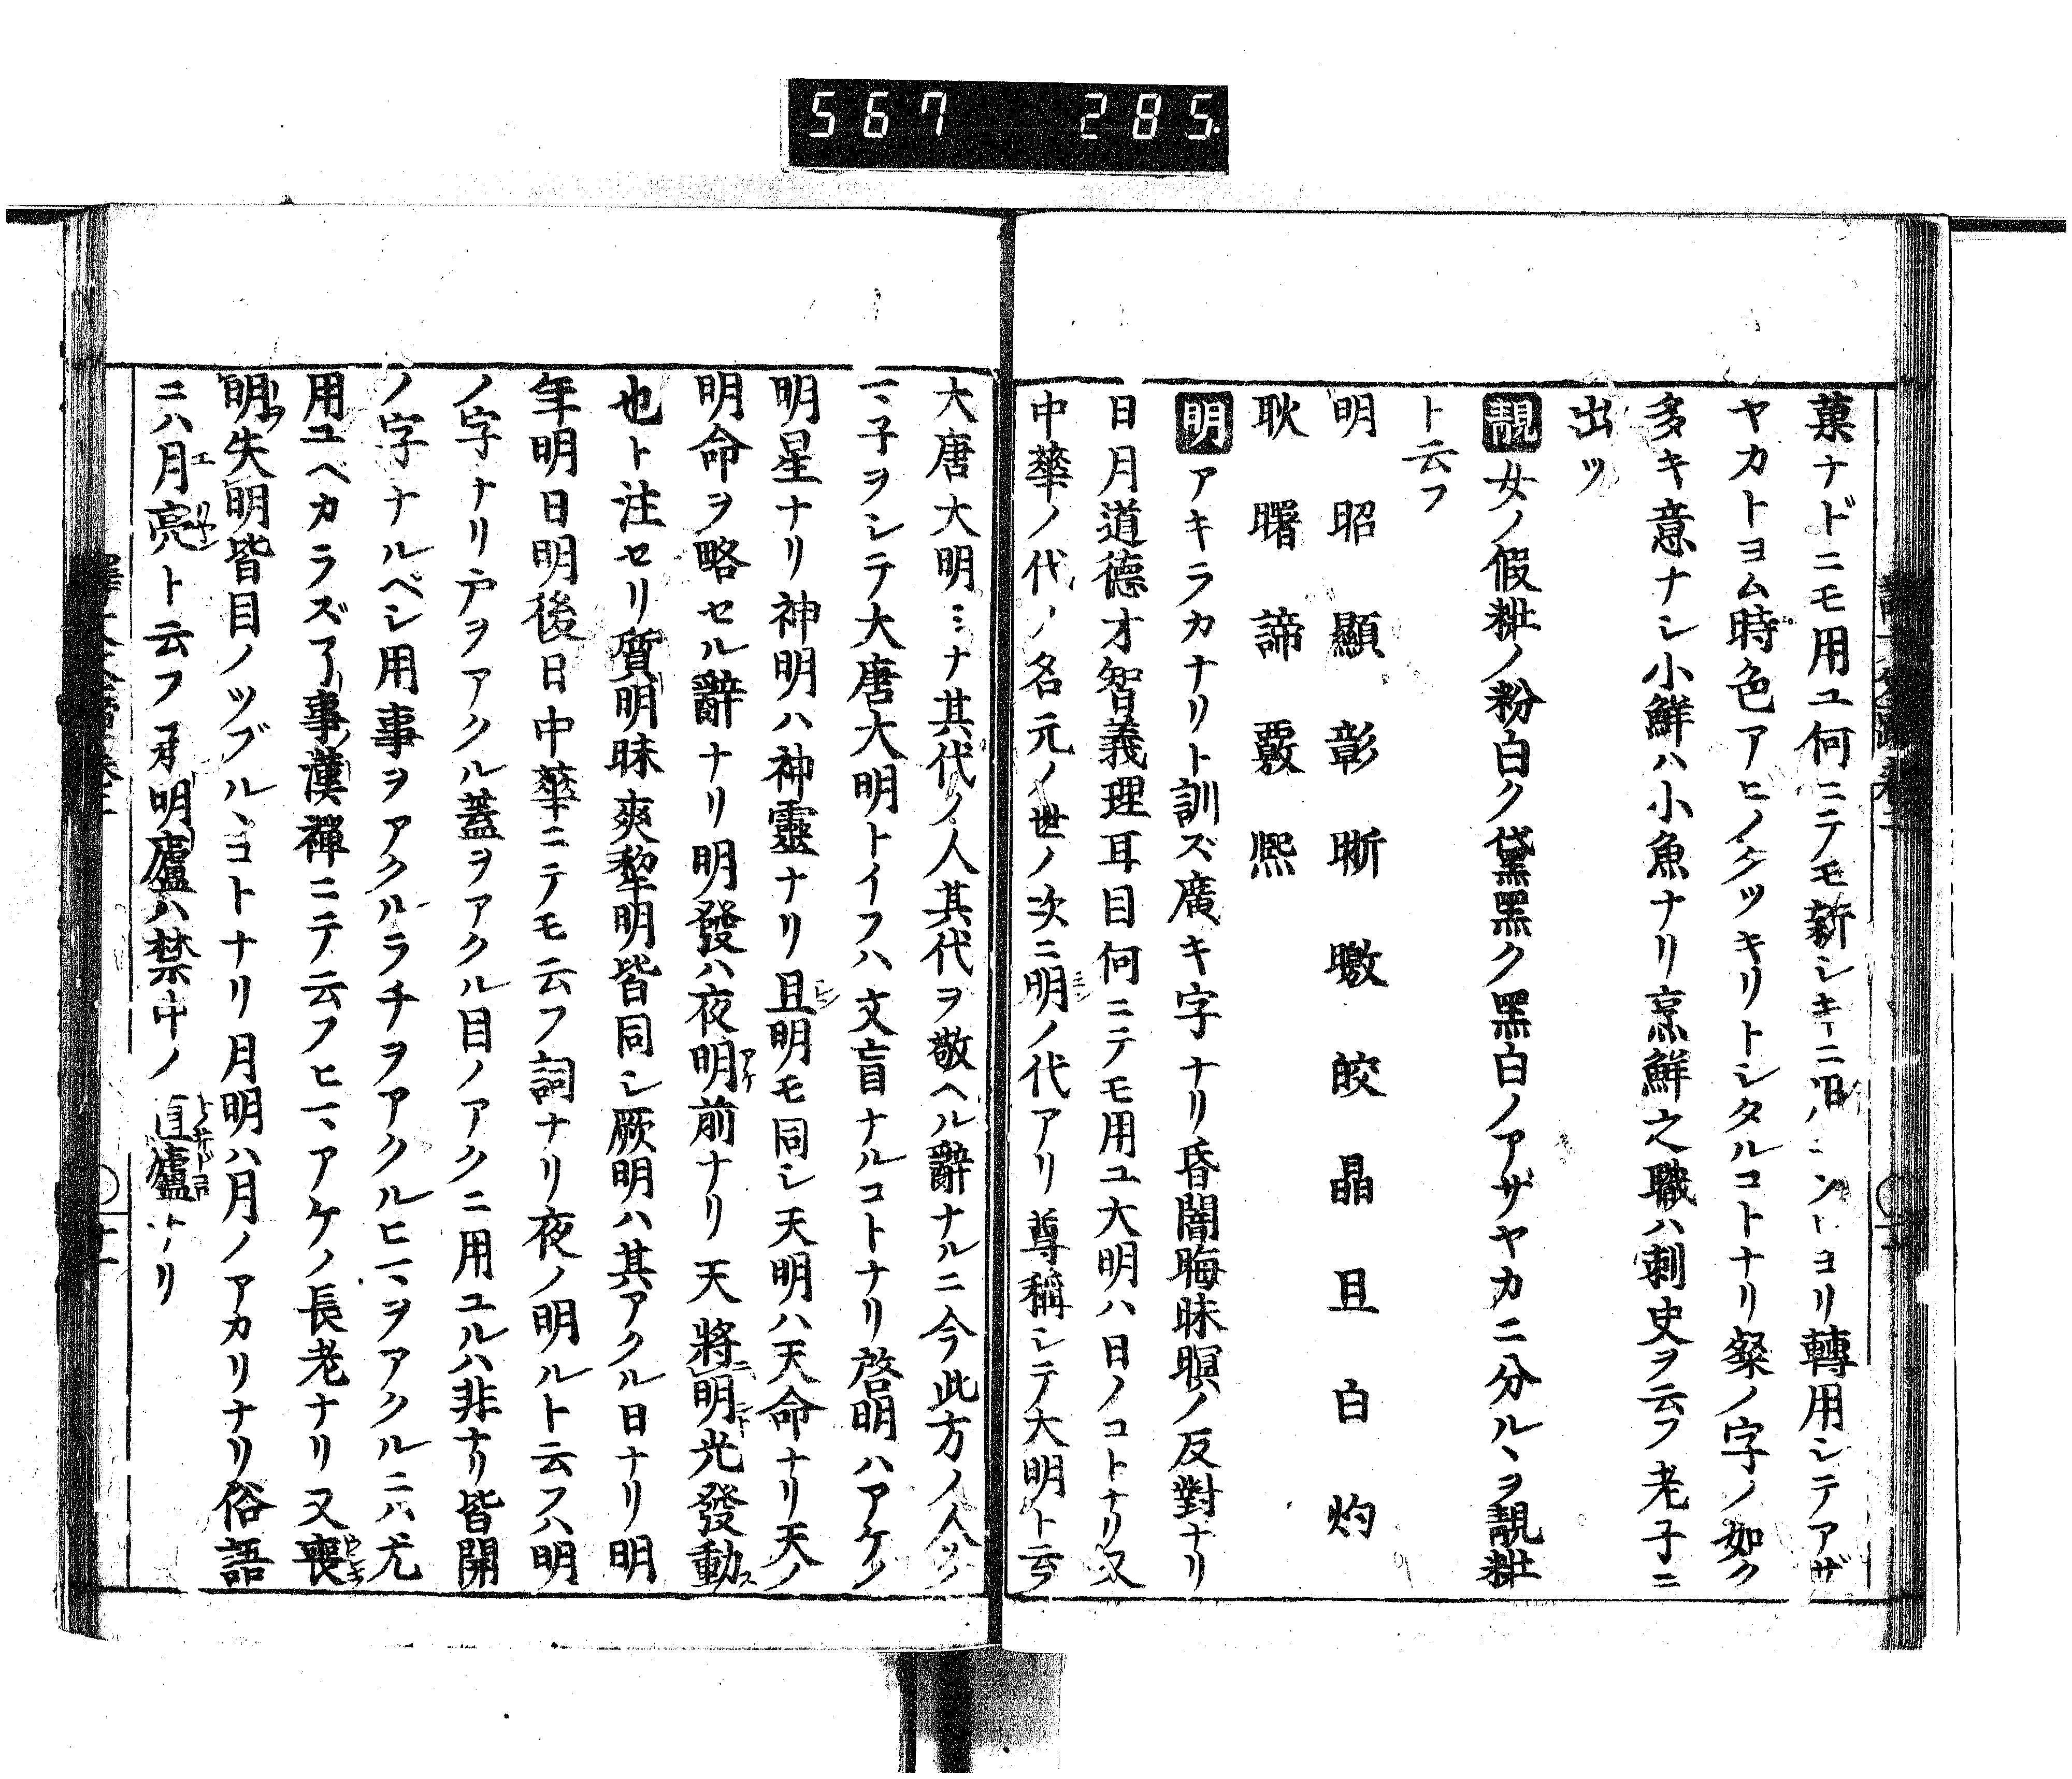 567 285
菓ナドニモ用ユ何ニテモ新シキニヨリ轉用シテアザ
ヤカトヨム時色アヒノクツキリトシタルコトナリ粲ノ字ノ如ク
多キ意ナシ小鮮ハ小魚ナリ烹鮮之職ハ刺史ヲ云フ老子ニ
出ツ
靚女ノ假粧ノ粉白ク黛黑ク黑白ノアザヤカニ分ルヽヲ靚粧
ト云フ
明昭顯彰晣曒皎晶旦白灼
耿曙諦覈熙
明アキラカナリト訓ズ廣キ字ナリ昏闇晦昧暝ノ反對ナリ
日月道德才智義理耳目何ニテモ用ユ大明ハ日ノコトナリ又
中華ノ代ノ名元ノ世ノ次ニ明ノ代アリ尊稱シテ大明ト云フ
大唐大明ミナ其代ノ人其代ヲ敬ヘル辭ナルニ今此方ノ人ツ
マ子ヲシテ大唐大明トイフハ文盲ナルコトナリ啓明ハアケノ
明星ナリ神明ハ神靈ナリ且明モ同シ天明ハ天命ナリ天ノ
明命ヲ略セル辭ナリ明發ハ夜明前ナリ天將明光發動
也ト注セリ質明昧爽犂明皆同シ厥明ハ其アクル日ナリ明
年明日明後日中華ニテモ云フ詞ナリ夜ノ明ルト云フハ明
ノ字ナリ戸ヲアクル蓋ヲアクル目ノアクニ用ユルハ非ナリ皆開
ノ字ナルベシ用事ヲアクルラチヲアクルヒマヲアクルニハ尤
用ユベカラズ了事漢禪ニテ云フヒマアケノ長老ナリ又喪
明失明皆目ノツブルヽコトナリ月明ハ月ノアカリナリ俗語
ニハ月亮ト云フ承明廬ハ禁中ノ直廬ナリ